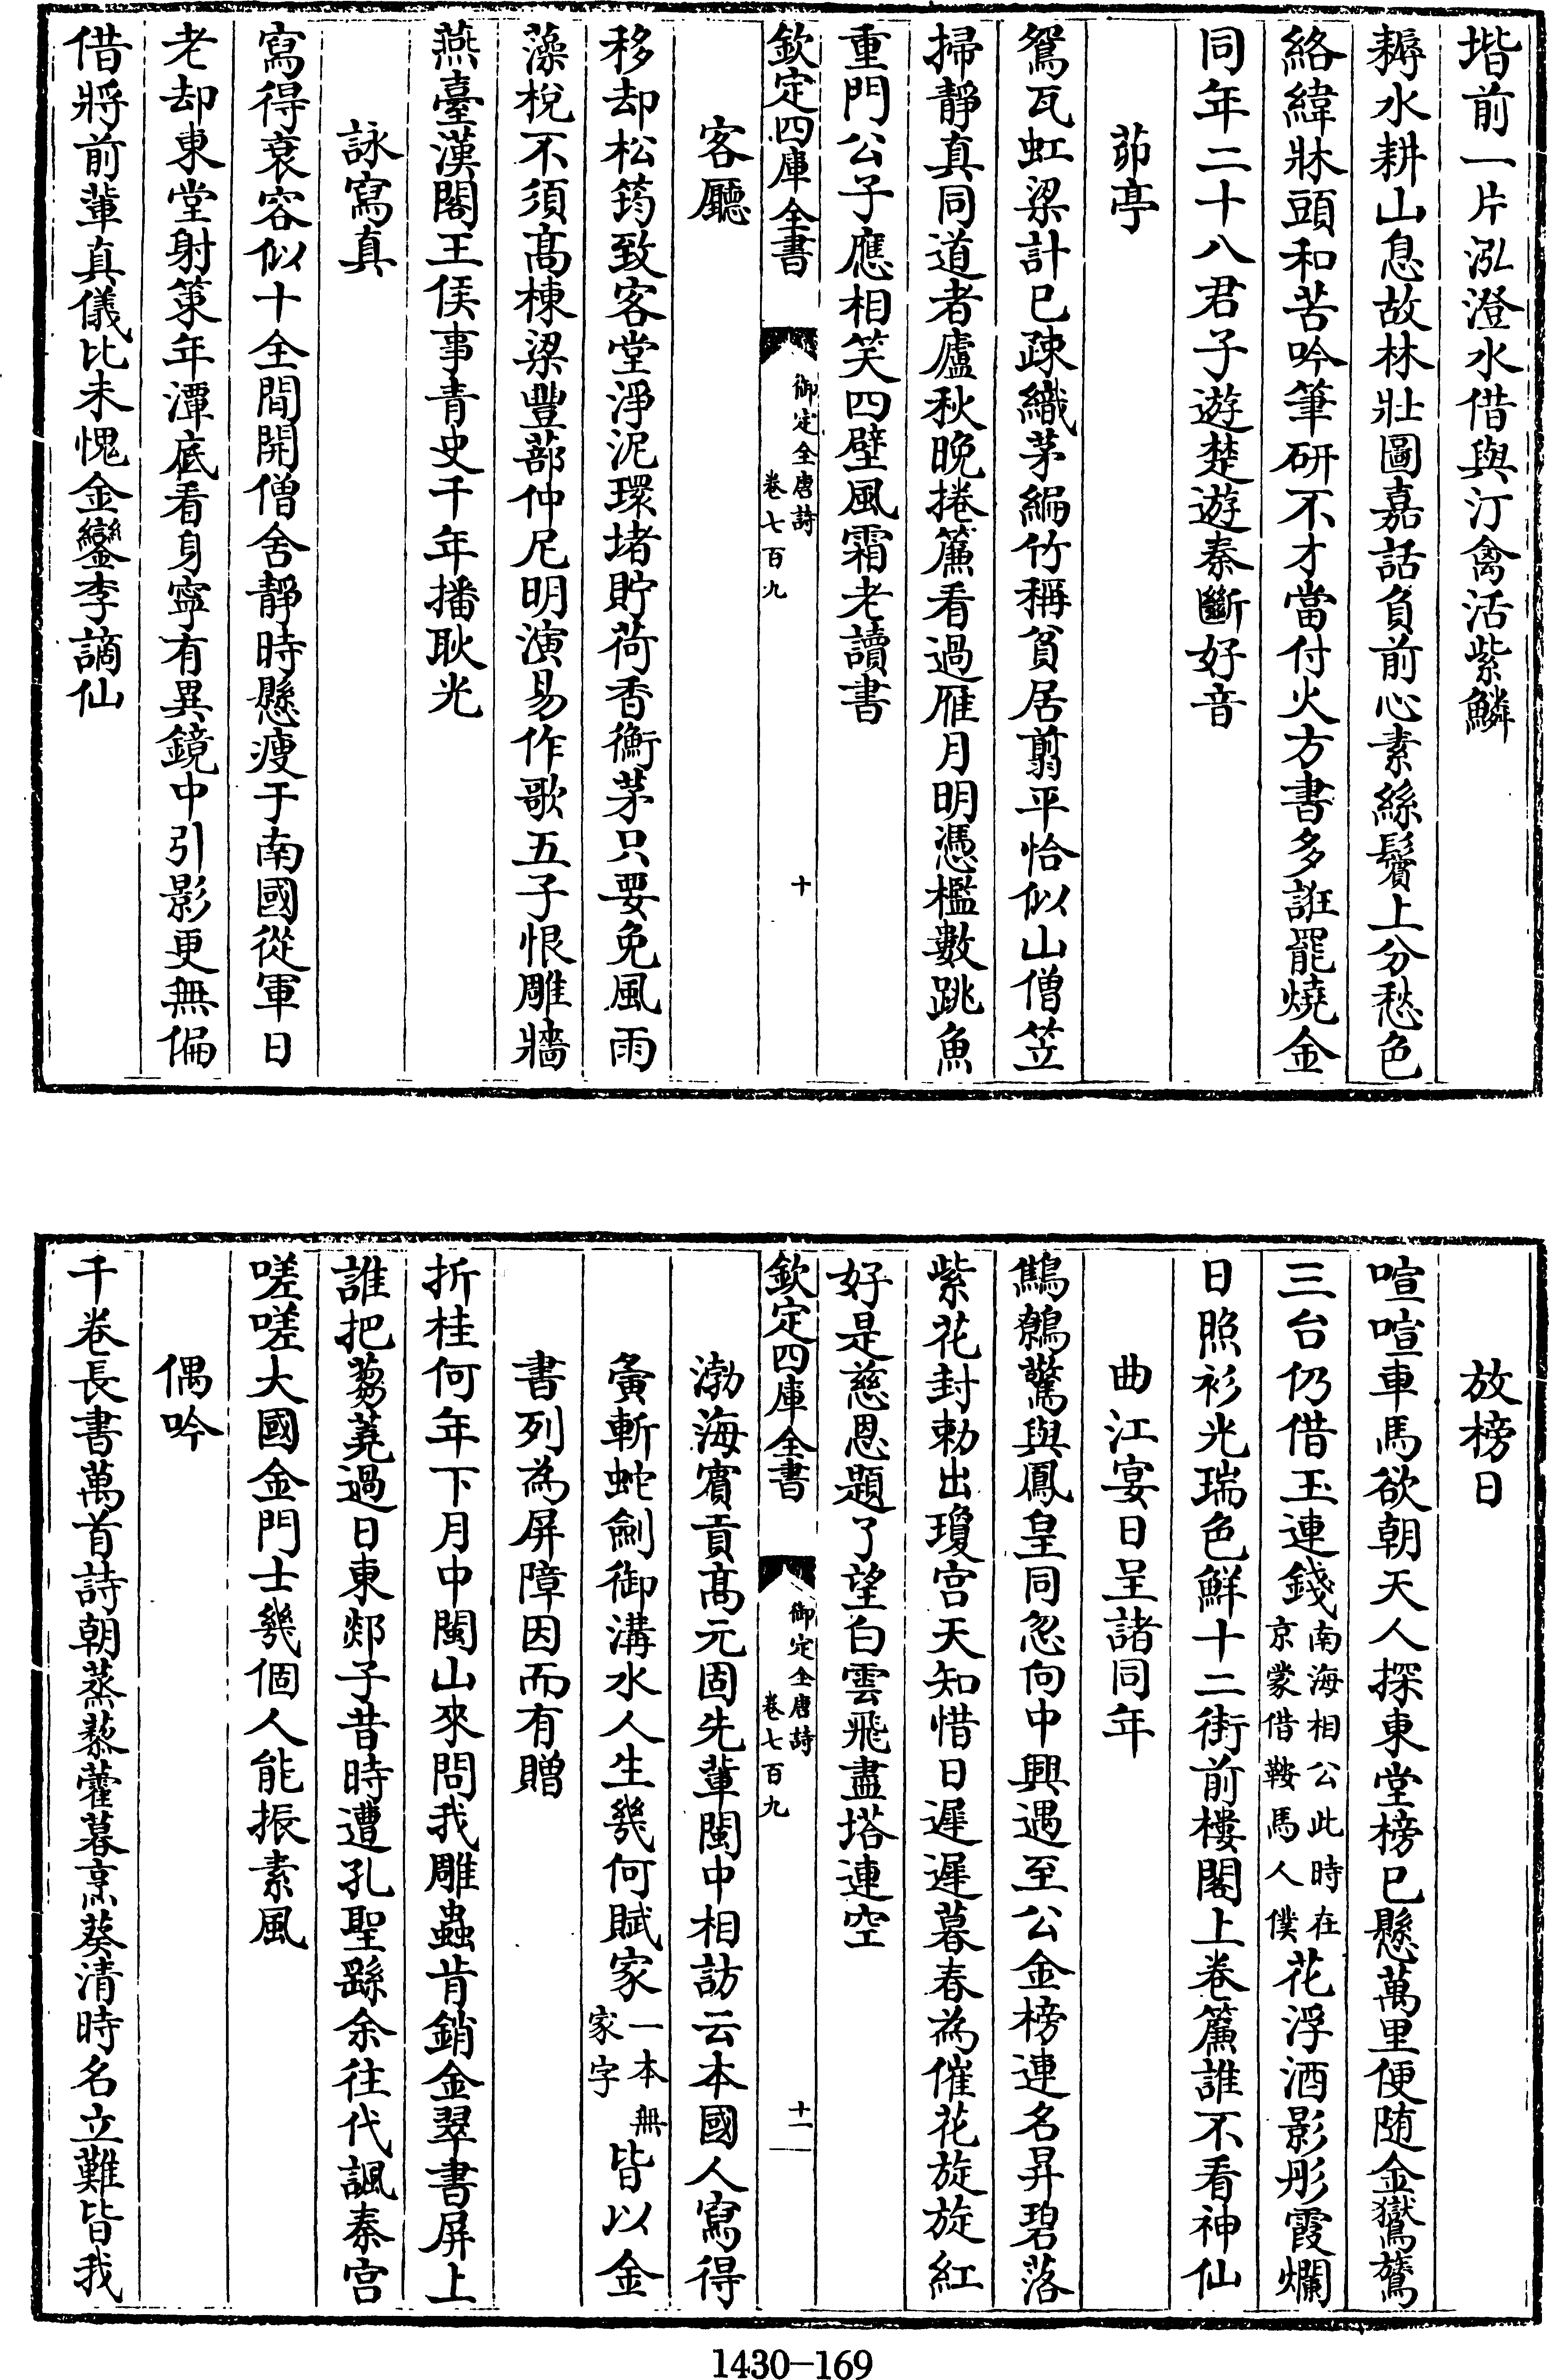 堦前一片泓澄水借與汀禽活紫鱗
耨水耕山息故林壯圖嘉話負前心素絲鬢上分愁色
絡緯牀頭和苦吟筆研不才當付火方書多誑罷燒金
同年二十八君子遊楚遊秦斷好音
茆亭
鴛瓦虹梁計已疎織茅編竹稱貧居翦平恰似山僧笠
掃靜真同道者廬秋晚捲簾看過雁月明憑檻數跳魚
重門公子應相笑四壁風霜老讀書
欽定四庫全書
御定全唐詩
卷七百九
十
客廳
移却松筠致客堂淨泥環堵貯荷香衡茅只要免風雨
藻梲不須髙棟梁豐蔀仲尼明演易作歌五子恨雕牆
燕臺漢閣王侯事青史千年播耿光
詠寫真
寫得衰容似十全閒開僧舍靜時懸瘦于南國從軍日
老却東堂射策年潭底看身寧有異鏡中引影更無偏
借將前輩真儀比未愧金鑾李謫仙
放榜日
喧喧車馬欲朝天人探東堂榜已懸萬里便随金鸑鷟
三台仍借玉連錢南海相公此時在京蒙借鞍馬人僕花浮酒影彤霞爛
日照衫光瑞色鮮十二街前樓閣上卷簾誰不看神仙
曲江宴日呈諸同年
鷦鷯驚與鳳皇同忽向中興遇至公金榜連名昇碧落
紫花封勅出瓊宫天知惜日遲遲暮春為催花旋旋紅
好是慈恩題了望白雲飛盡塔連空
欽定四庫全書
御定全唐詩
卷七百九
十一
渤海賓貢髙元固先輩閩中相訪云本國人寫得
夤斬蛇劍御溝水人生幾何賦家一本無家字皆以金
書列為屏障因而有贈
折桂何年下月中閩山來問我雕蟲肯銷金翠書屏上
誰把蒭蕘過日東郯子昔時遭孔聖繇余往代諷秦宫
嗟嗟大國金門士幾個人能振素風
偶吟
千卷長書萬首詩朝蒸藜藿暮烹葵清時名立難皆我
1430-169